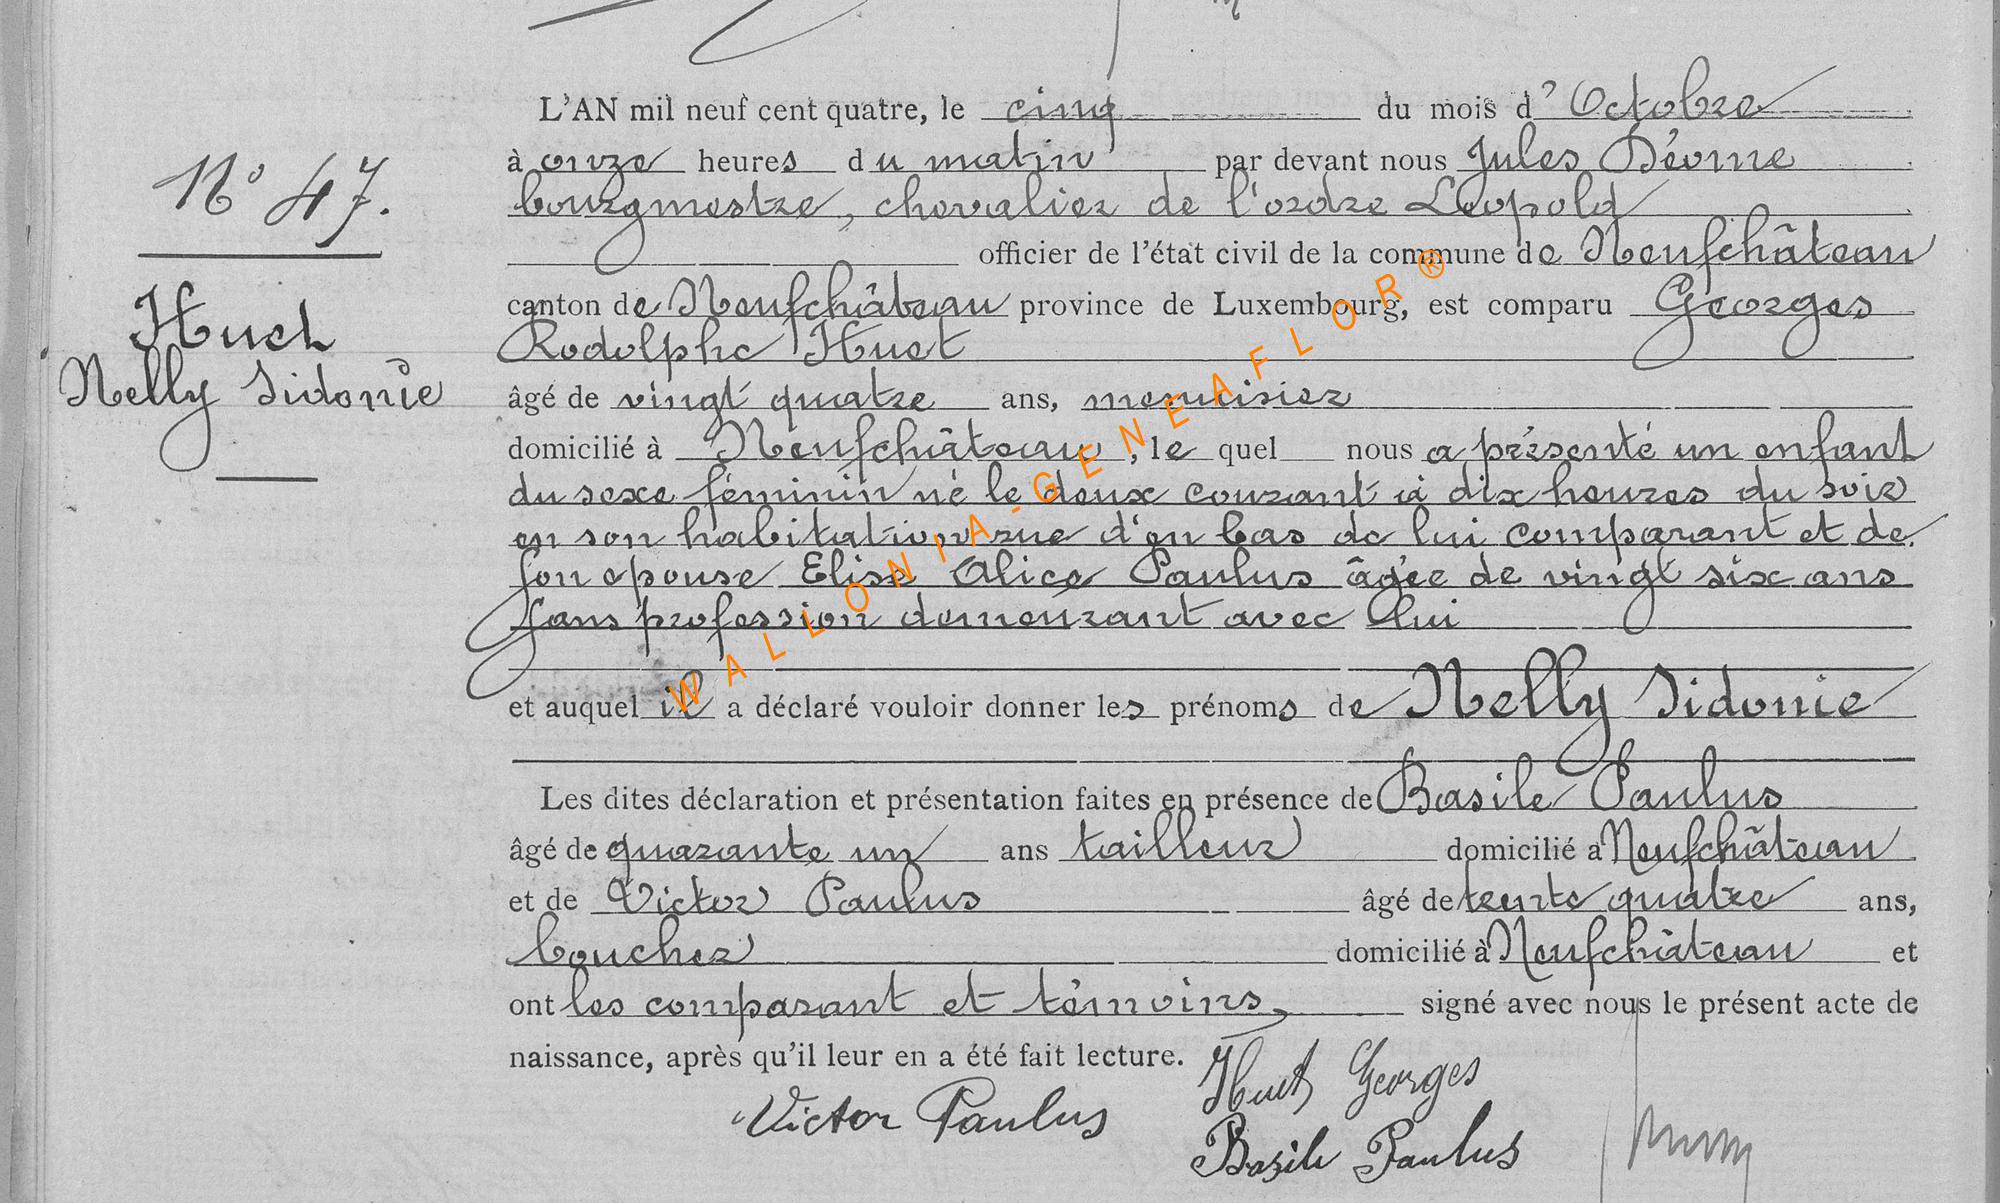 L'AN mil neuf cent quatre, le cinq du mois d'Octobre
à onze heures du matin par devant nous Jules Déome
bourgmestre, chevalier de l'ordre Léopold
officier de l'état civil de la commune de Neufchâteau
canton de Neufchâteau province de Luxembourg, est comparu Georges
Rodolphe Huet
âgé de vingt quatre ans, menuisier
domicilié à Neufchâteau, le quel nous a présenté un enfant
du sexe féminin né le deux courant à dix heures du soir
en son habitation rue d'en bas de lui comparant et de
son épouse Elise Alice Paulus âgée de vingt six ans
sans profession demeurant avec lui
et auquel il a déclaré vouloir donner les prénoms de Nelly Sidonie
Les dites déclaration et présentation faites en présence de Basile Paulus
âgé de quarante un ans tailleur domicilié a Neufchâteau
et de Victor Paulus âgé de trente quatre ans,
boucher domicilié à Neufchâteau et
ont les comparant et témoins, signé avec nous le présent acte de
naissance, après qu'il leur en a été fait lecture.
Huet Georges
Victor Paulus
Basile Paulus
N° 47.
Huet
Nelly Sidonie
WALLONIA-GENEAFLOR®